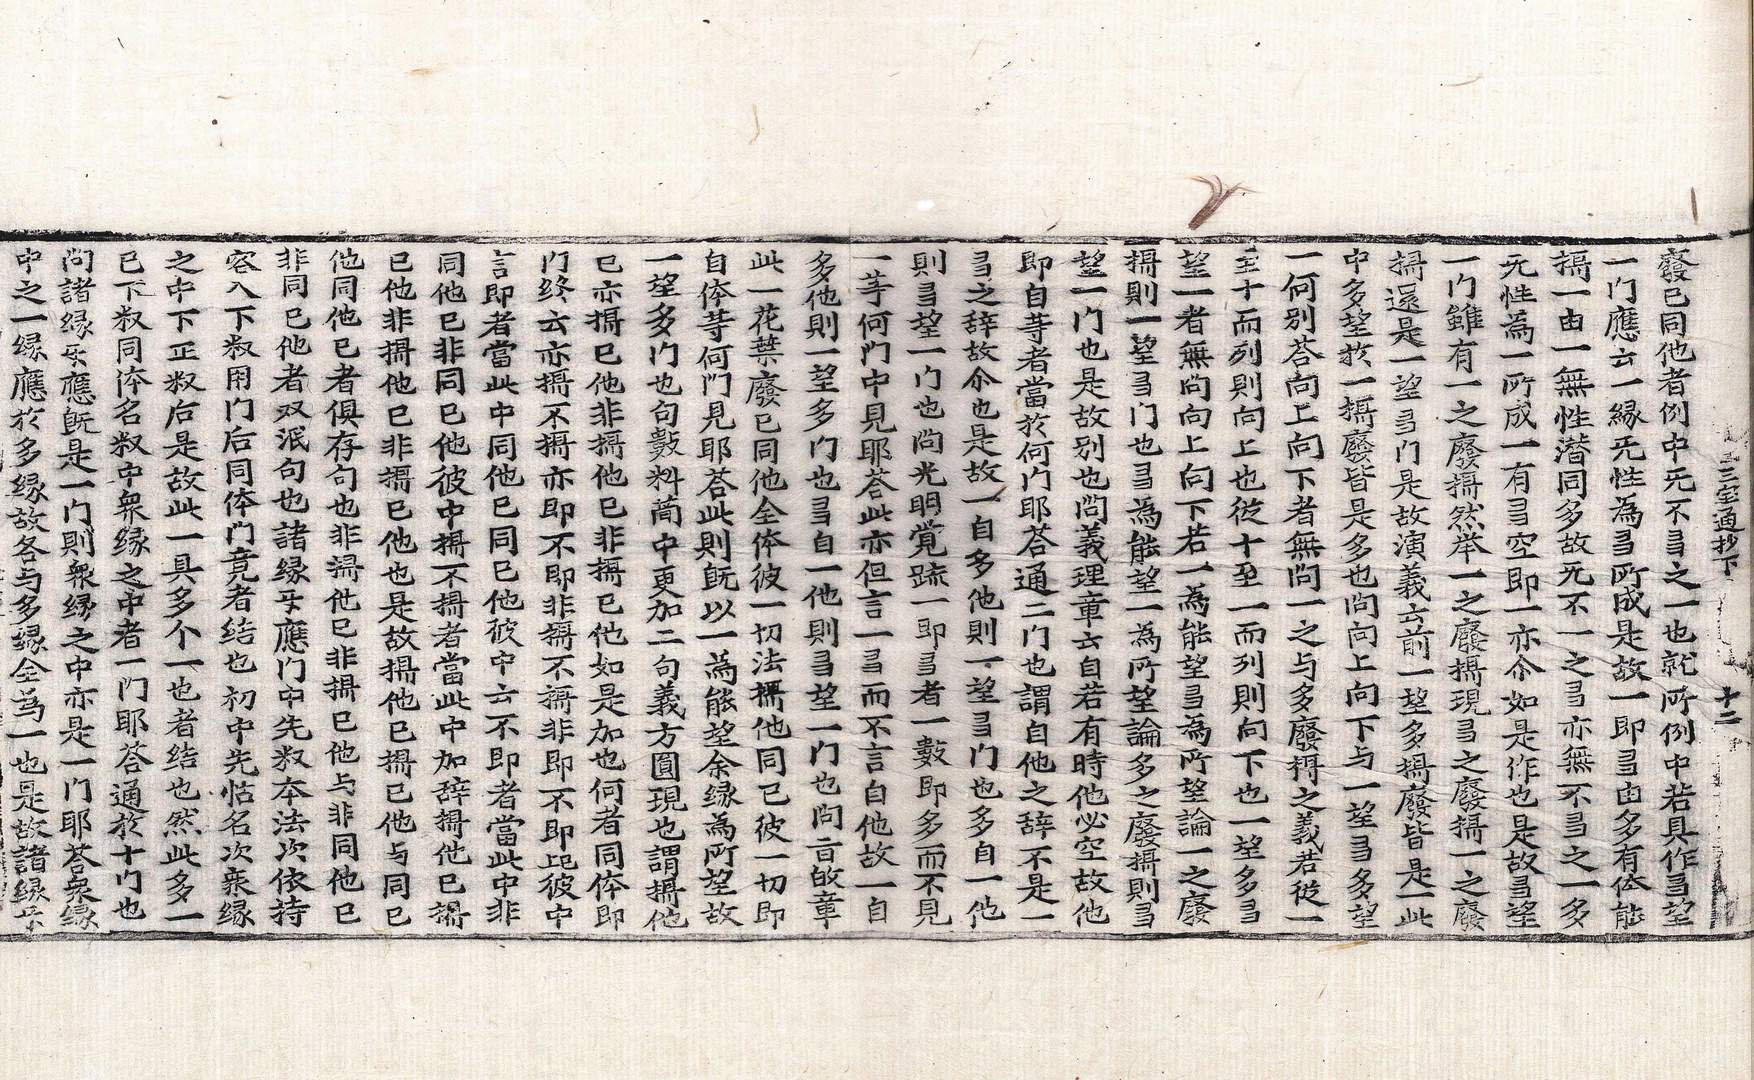 三宝通抄下　十二
廢已同他者例中无不㝵之一也就所例中若具作㝵望
一门應云一緣无性為㝵所成是故一即㝵由多有依能
攝一由一無性潛同多故无不一之㝵亦無不㝵之一多
无性為一所成一有㝵空即一亦尒如是作也是故㝵望
一门雖有一之廢攝然举一之廢攝現㝵之廢攝一之廢
攝還是一望㝵门是故演義云前一望多攝廢皆是一此
中多望於一攝廢皆是多也问向上向下与一望㝵多望
一何别荅向上向下者無问一之与多廢攝之義若從一
至十而列則向上也從十至一而列則向下也一望多㝵
望一者無问向上向下若一為能望㝵為所望論一之廢
攝則一望㝵门也㝵為能望一為所望論多之廢攝則㝵
望一门也是故别也问義理章云自若有時他必空故他
即自等者當於何门耶荅通二门也謂自他之辞不是一
㝵之辞故尒也是故一自多他則一望㝵门也多自一他
則㝵望一门也问光明覚䟽一即㝵者一數即多而不見
一等何门中見耶荅此亦但言一㝵而不言自他故一自
多他則一望多门也㝵自一他則㝵望一门也问旨的章
此一花葉廢已同他全体彼一切法攝他同已彼一切即
自体等何门見耶荅此則旣以一為能望余緣為所望故
一望多门也句數料蕳中更加二句義方圓現也謂攝他
已亦攝已他非攝他已非攝已他如是加也何者同体即
门终云亦攝不攝亦即不即非攝不攝非即不即㠯彼中
言即者當此中同他已同已他彼中云不即者當此中非
同他已非同已他彼中攝不攝者當此中加辞攝他已攝
已他非攝他已非攝已他也是故攝他已攝已他与同已
他同他已者俱存句也非攝他已非攝已他与非同他已
非同已他者双泯句也諸緣㸦應门中先叙本法次依持
容入下叙用门后同体门竟者结也初中先牒名次衆緣
之中下正叙后是故此一具多个一也者结也然此多一
已下叙同体名叙中衆緣之中者一门耶荅通於十门也
问諸緣㸦應旣是一门則衆緣之中亦是一门耶荅衆緣
中之一緣應於多緣故各与多緣全為一也是故諸緣㸦